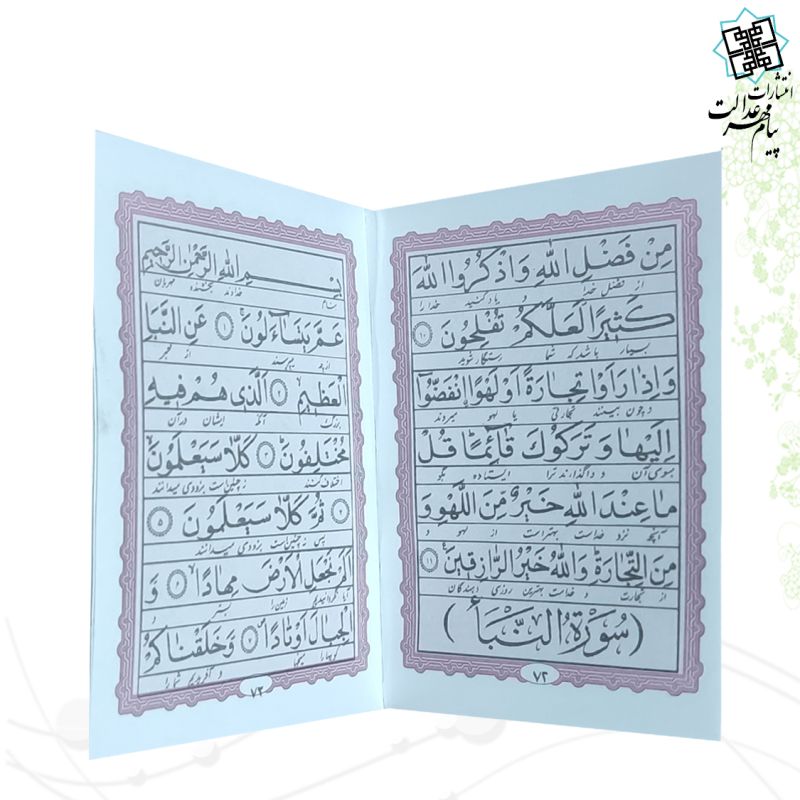 انتشارات
پیام مهر عدالت
مِنْ فَضْلِ اللهِ وَاذْكُرُوا اللهَ
از فضل خدا و یاد کنید خدا را
كَثيرًا لَعَلَّكُمْ تُفْلِحُونَ ١٠
بسیار باشد که شما رستگار شوید
وَاِذا رَاَوْا تِجارَةً اَوْ لَهْوًا انْفَضُّوا
و چون ببینند تجارتی یا لهو میروند
اِلَيْها وَ تَرَكُوكَ قائِمًا قُلْ
بسوی آن و واگذارند ترا ایستاده بگو
ما عِنْدَ اللهِ خَيْرٌ مِنَ اللَّهْوِ وَ
آنچه نزد خداست بهتر است از لهو و
مِنَ التِّجارَةِ وَاللهُ خَيْرُ الرّازِقينَ ١١
از تجارت و خداست بهترین روزی دهندگان
(سُورَةُ النَّبَأ)
٧٢
بِسْمِ اللهِ الرَّحْمنِ الرَّحيمِ
بنام خداوند بخشنده مهربان
عَمَّ يَتَساءَلُونَ ١ عَنِ النَّبَاِ
از چه میپرسند از خبر
الْعَظيمِ ٢ اَلَّذى هُمْ فيهِ
بزرگ آنکه ایشان در آن
مُخْتَلِفُونَ ٣ كَلّا سَيَعْلَمُونَ
اختلاف کنند نه چنین است بزودی میدانند
٤ ثُمَّ كَلّا سَيَعْلَمُونَ ٥
پس نه چنین است بزودی میدانند
اَلَمْ نَجْعَلِ الْاَرْضَ مِهادًا ٦ وَ
آیا نگردانیدیم زمین را بستر و
الْجِبالَ اَوْتادًا ٧ وَ خَلَقْناكُمْ
کوهها را میخها و آفریدیم شما را
٧٣